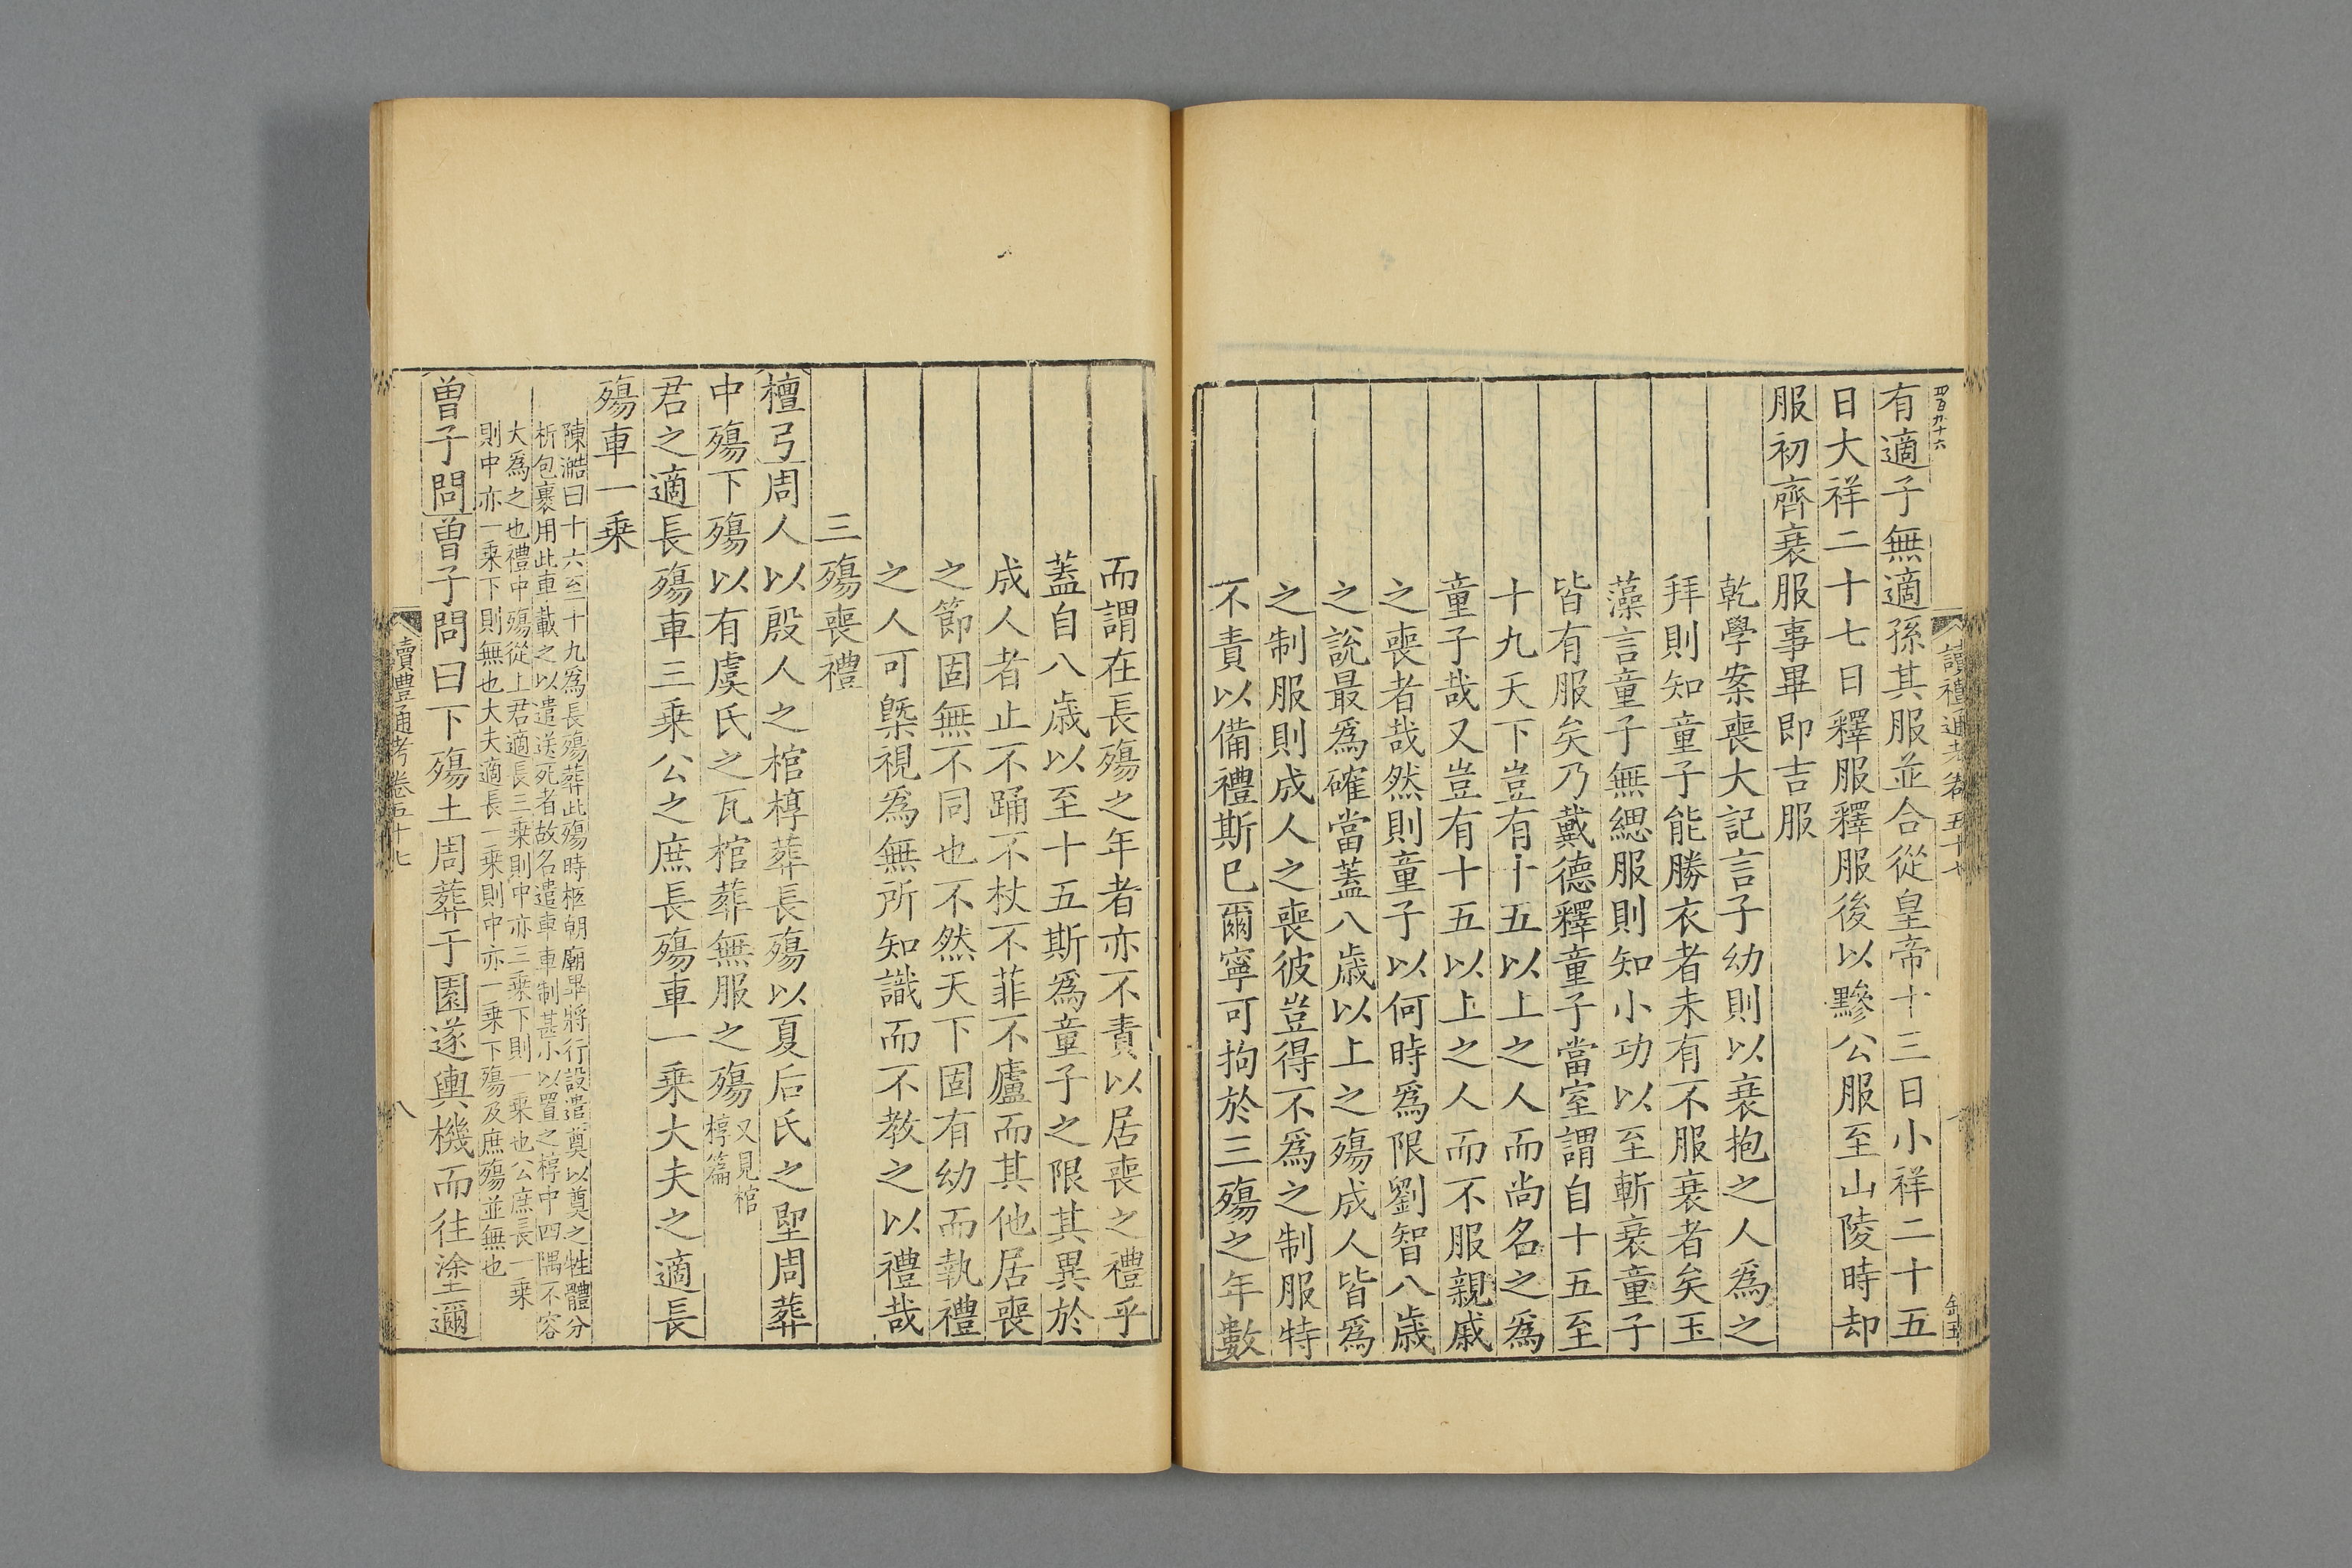 四百九十六
讀禮通考卷五十七
有適子無適孫其服並合從皇帝十三日小祥二十五
日大祥二十七日釋服釋服後以黲公服至山陵時却
服初齊衰服事畢即吉服
乾學案喪大記言子幼則以衰抱之人爲之
拜則知童子能勝衣者未有不服衰者矣玉
藻言童子無緦服則知小功以至斬衰童子
皆有服矣乃戴德釋童子當室謂自十五至
十九天下豈有十五以上之人而尚名之爲
童子哉又豈有十五以上之人而不服親戚
之喪者哉然則童子以何時爲限劉智八歲
之說最爲確當蓋八歲以上之殤成人皆爲
之制服則成人之喪彼豈得不爲之制服特
不責以備禮斯已爾寧可拘於三殤之年數
而謂在長殤之年者亦不責以居喪之禮乎
蓋自八歲以至十五斯爲童子之限其異於
成人者止不踊不杖不菲不廬而其他居喪
之節固無不同也不然天下固有幼而執禮
之人可槩視爲無所知識而不教之以禮哉
三殤喪禮
檀弓周人以殷人之棺椁葬長殤以夏后氏之堲周葬
中殤下殤以有虞氏之瓦棺葬無服之殤又見棺
椁篇
君之適長殤車三乘公之庶長殤車一乘大夫之適長
殤車一乘
陳澔曰十六至十九爲長殤葬此殤時柩朝廟畢將行設遣奠以奠之牲體分
析包裹用此車載之以遣送死者故名遣車車制甚小以置之椁中四隅不容
大爲之也禮中殤從上君適長三乘則中亦三乘下則一乘也公庶長一乘
則中亦一乘下則無也大夫適長一乘則中亦一乘下殤及庶殤並無也
曾子問曾子問曰下殤土周葬于園遂輿機而往塗邇
讀禮通考卷五十七
八